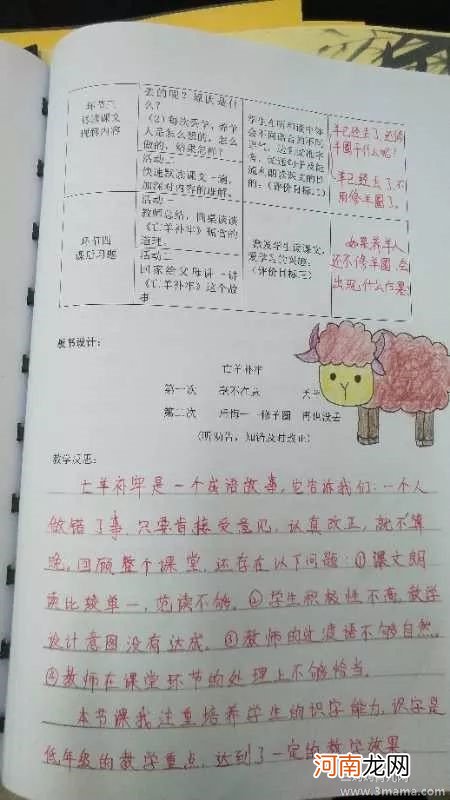 去的呢？原因是什么？
环节三
研读课文
理解内容
（2）每次丢羊，养羊人是怎么想的，怎么做的，结果怎样？
活动二
快速默读课文一遍，加深对内容的理解。
羊已经丢了，还修羊圈干什么呢？
羊已经丢了，不用修羊圈了。
环节四
课后习题
活动一
教师总结，同桌谈谈《亡羊补牢》蕴含的道理。
活动二
回家给父母讲一讲《亡羊补牢》这个故事
激发学生读课文，爱学习的兴趣。
（评价目标三）
如果养羊人
还不修羊圈，会
出现什么后果
板书设计：
亡羊补牢
第一次 毫不在意
第二次 后悔－－修羊圈 再也没丢
（听劝告，知错及时改正）
教学反思：
亡羊补牢是一个成语故事，它告诉我们：一个人
做错了事，只要肯接受意见，认真改正，就不算
晚。回顾整个课堂，还存在以下问题：①课文朗
读比较单一，范读不够。②学生积极性不高，教学
设计意图没有达成。③教师的过渡语不够自然。
④教师在课堂环节的处理上不够恰当。
本节课我注重培养学生的识字能力，识字是
低年级的教学重点，达到了一定的教学效果
河南龙网
www.3mama.com